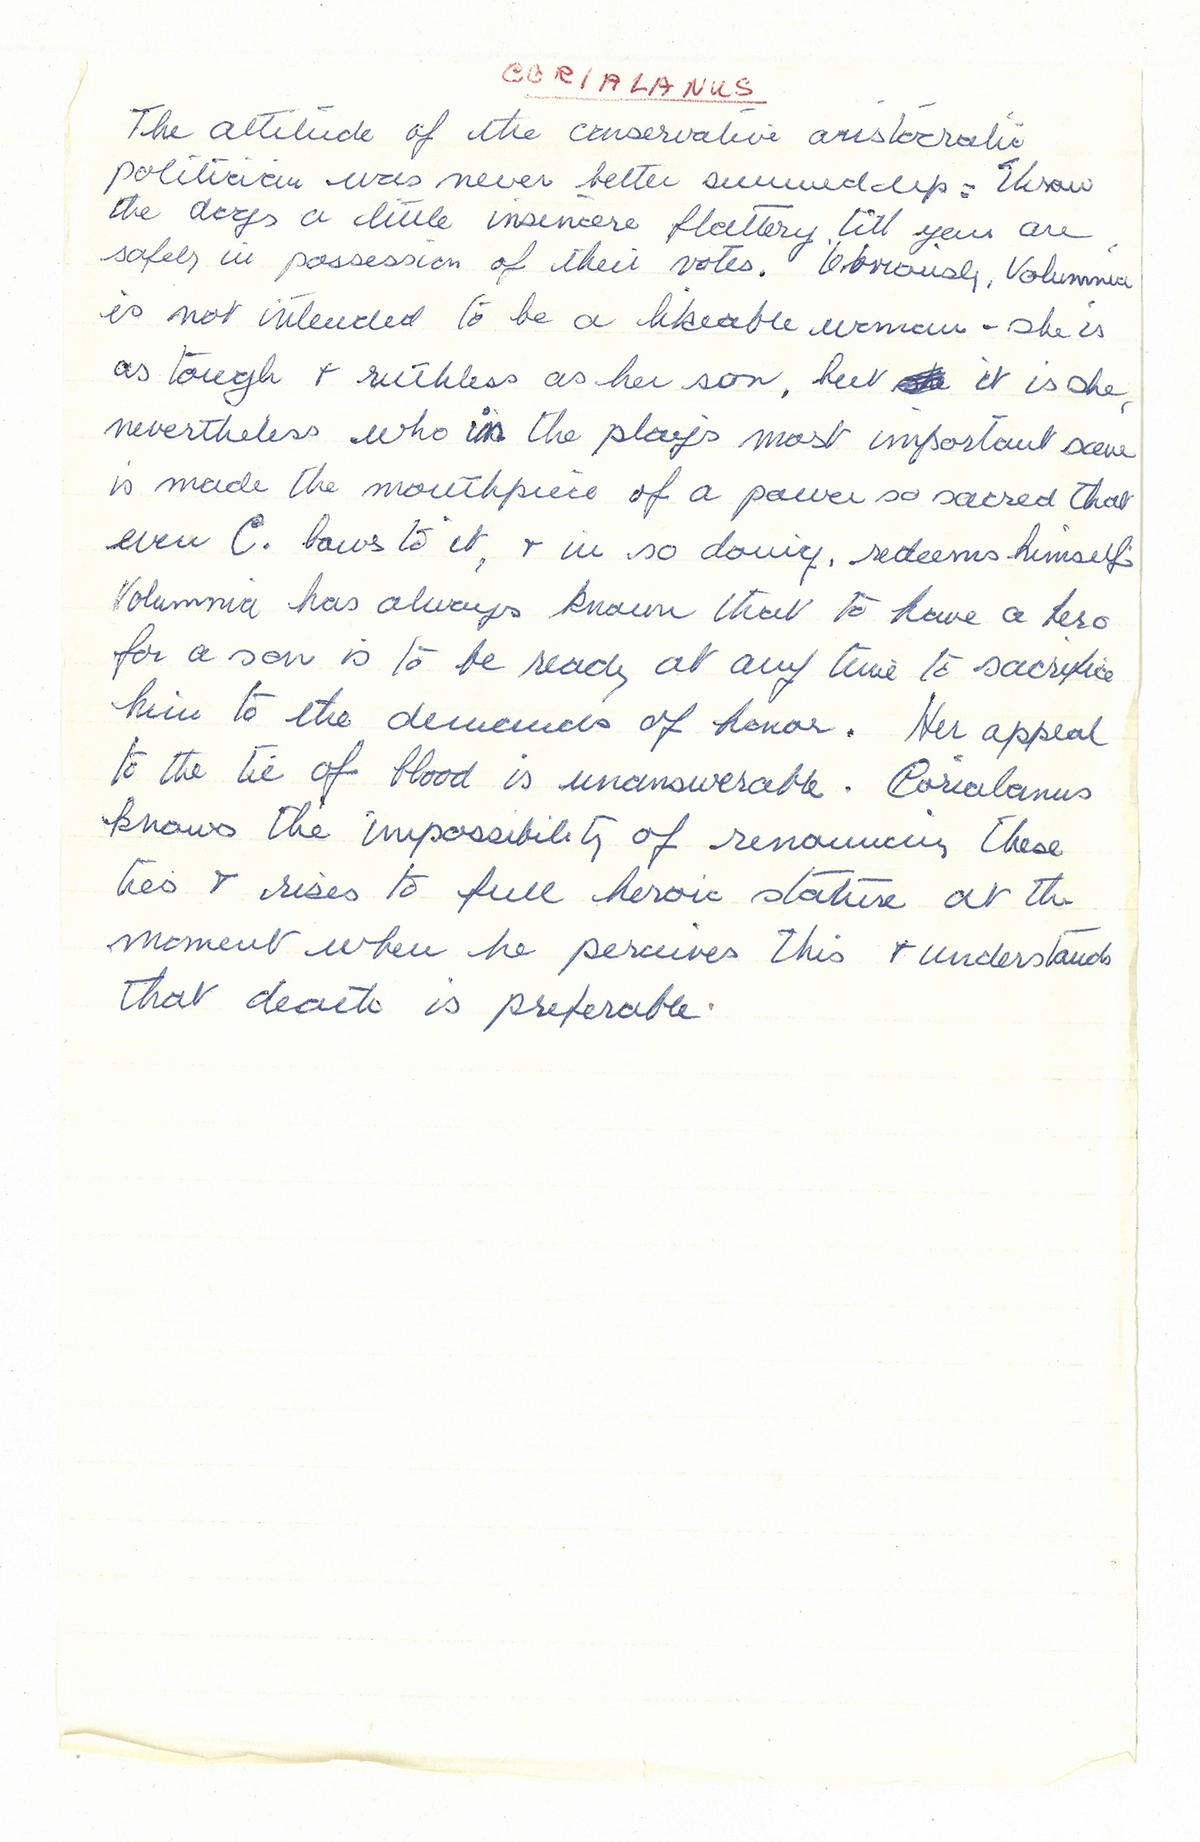 CORIALANUS
The attitude of the conservative aristocratic
politician was never better summed up: Throw
the dogs a little insincere flattery till you are
safely in possession of their votes. Obviously, Volumnia
is not intended to be a likeable woman - she is
as tough & ruthless as her son, but it is she,
nevertheless who in the play's most important scene
is made the mouthpiece of a power so sacred that
even C. bows to it, & in so doing, redeems himself.
Volumnia has always known that to have a hero
for a son is to be ready at any time to sacrifice
him to the demands of honor. Her appeal
to the tie of blood is unanswerable. Corialanus
knows the impossibility of renouncing these
ties & rises to full heroic stature at the
moment when he perceives this & understands
that death is preferable.